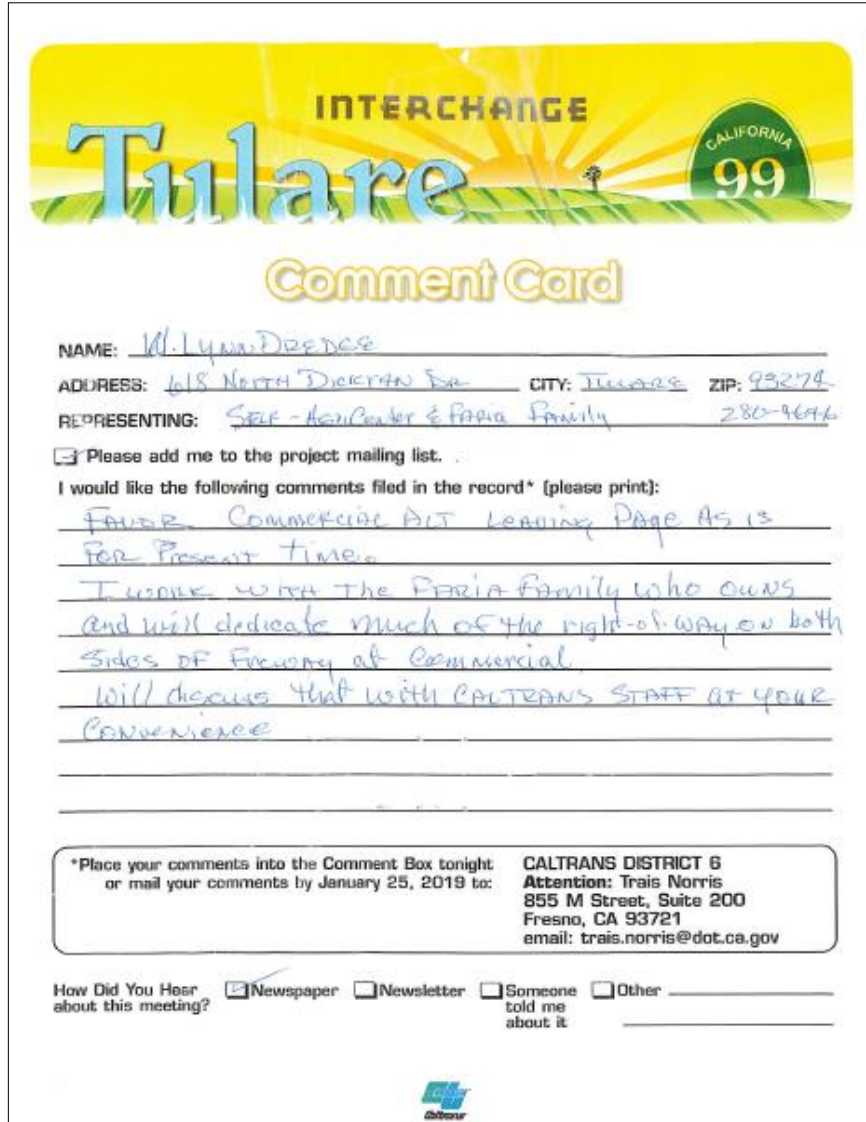 INTERCHANGE
Tulare
CALIFORNIA
99
Comment Card
NAME: W. LYNN DREDGE
ADDRESS: 618 NORTH DICKRAN DR CITY: TULARE ZIP: 93274
REPRESENTING: SELF - AgriCenter & FARIA FAMILY 280-9646
Please add me to the project mailing list.
I would like the following comments filed in the record* (please print):
FAVOR COMMERCIAL ALT LEAVING PAGE AS IS
FOR PRESENT TIME.
I WORK WITH THE FARIA FAMILY who OWNS
and will dedicate much of the right-of-way on both
Sides OF Freeway at Commercial
Will discuss that with CALTRANS STAFF at YOUR
CONVENIENCE
*Place your comments into the Comment Box tonight
or mail your comments by January 25, 2019 to:
CALTRANS DISTRICT 6
Attention: Trais Norris
855 M Street, Suite 200
Fresno, CA 93721
email: trais.norris@dot.ca.gov
How Did You Hear
about this meeting?
Newspaper Newsletter Someone
told me
about it
Other
Caltrans